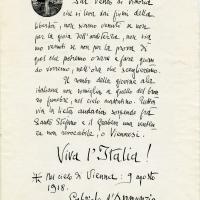 Sul vento di vittoria
che si leva dai fiumi della
libertà, non siamo venuti se non
per la gioia dell'arditezza, non sia-
mo venuti se non per la prova di
quel che potremo osare e fare quando
vorremo, nell'ora che sceglieremo.
Il rombo della giovine ala
italiana non somiglia a quello del bron-
zo funebre, nel cielo mattutino. Tuttavia
la lieta audacia sospende fra
Santo Stefano e il Graben una senten-
za non revocabile, o Viennesi.
Viva l'Italia!
Nel cielo di Vienna: 9 agosto
1918.
Gabriele d'Annunzio